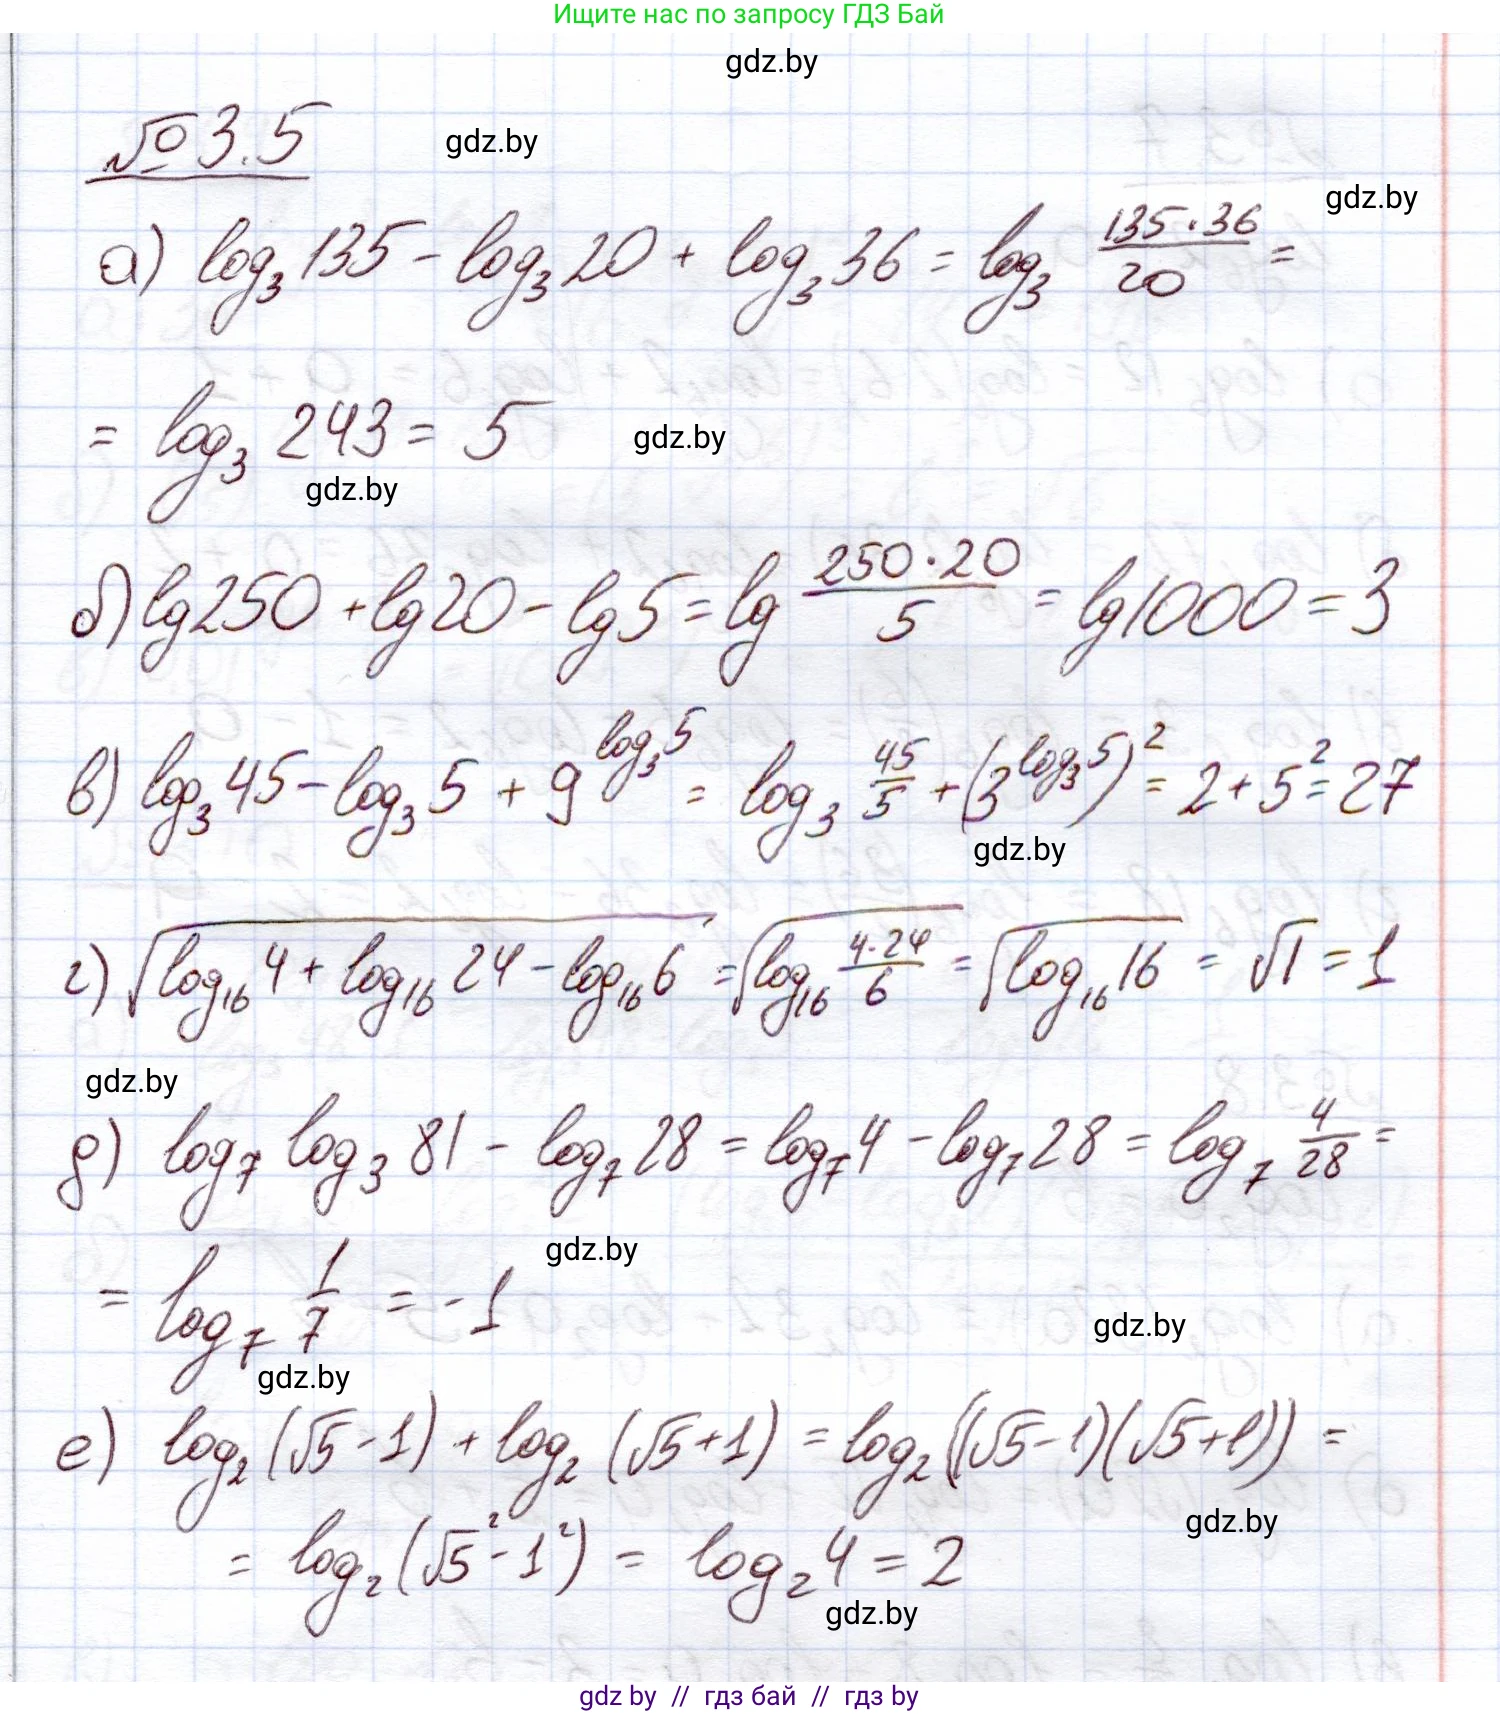 Ищите нас по запросу ГДЗ Бай
gdz.by
№ 3.5 gdz.by
gdz.by
а) log₃ 135 - log₃ 20 + log₃ 36 = log₃ (135·36)/20 =
= log₃ 243 = 5 gdz.by
gdz.by
б) lg 250 + lg 20 - lg 5 = lg (250·20)/5 = lg 1000 = 3
в) log₃ 45 - log₃ 5 + 9^(log₃ 5) = log₃ 45/5 + (3^(log₃ 5))² = 2 + 5² = 27
gdz.by
г) √(log₁₆ 4 + log₁₆ 24 - log₁₆ 6) = √(log₁₆ (4·24)/6) = √(log₁₆ 16) = √1 = 1
gdz.by
д) log₇ log₃ 81 - log₇ 28 = log₇ 4 - log₇ 28 = log₇ 4/28 =
gdz.by
= log₇ 1/7 = -1
gdz.by
gdz.by
е) log₂ (√5 - 1) + log₂ (√5 + 1) = log₂ ((√5 - 1)(√5 + 1)) =
gdz.by
= log₂ (√5² - 1²) = log₂ 4 = 2
gdz.by
gdz by // гдз бай // гдз by